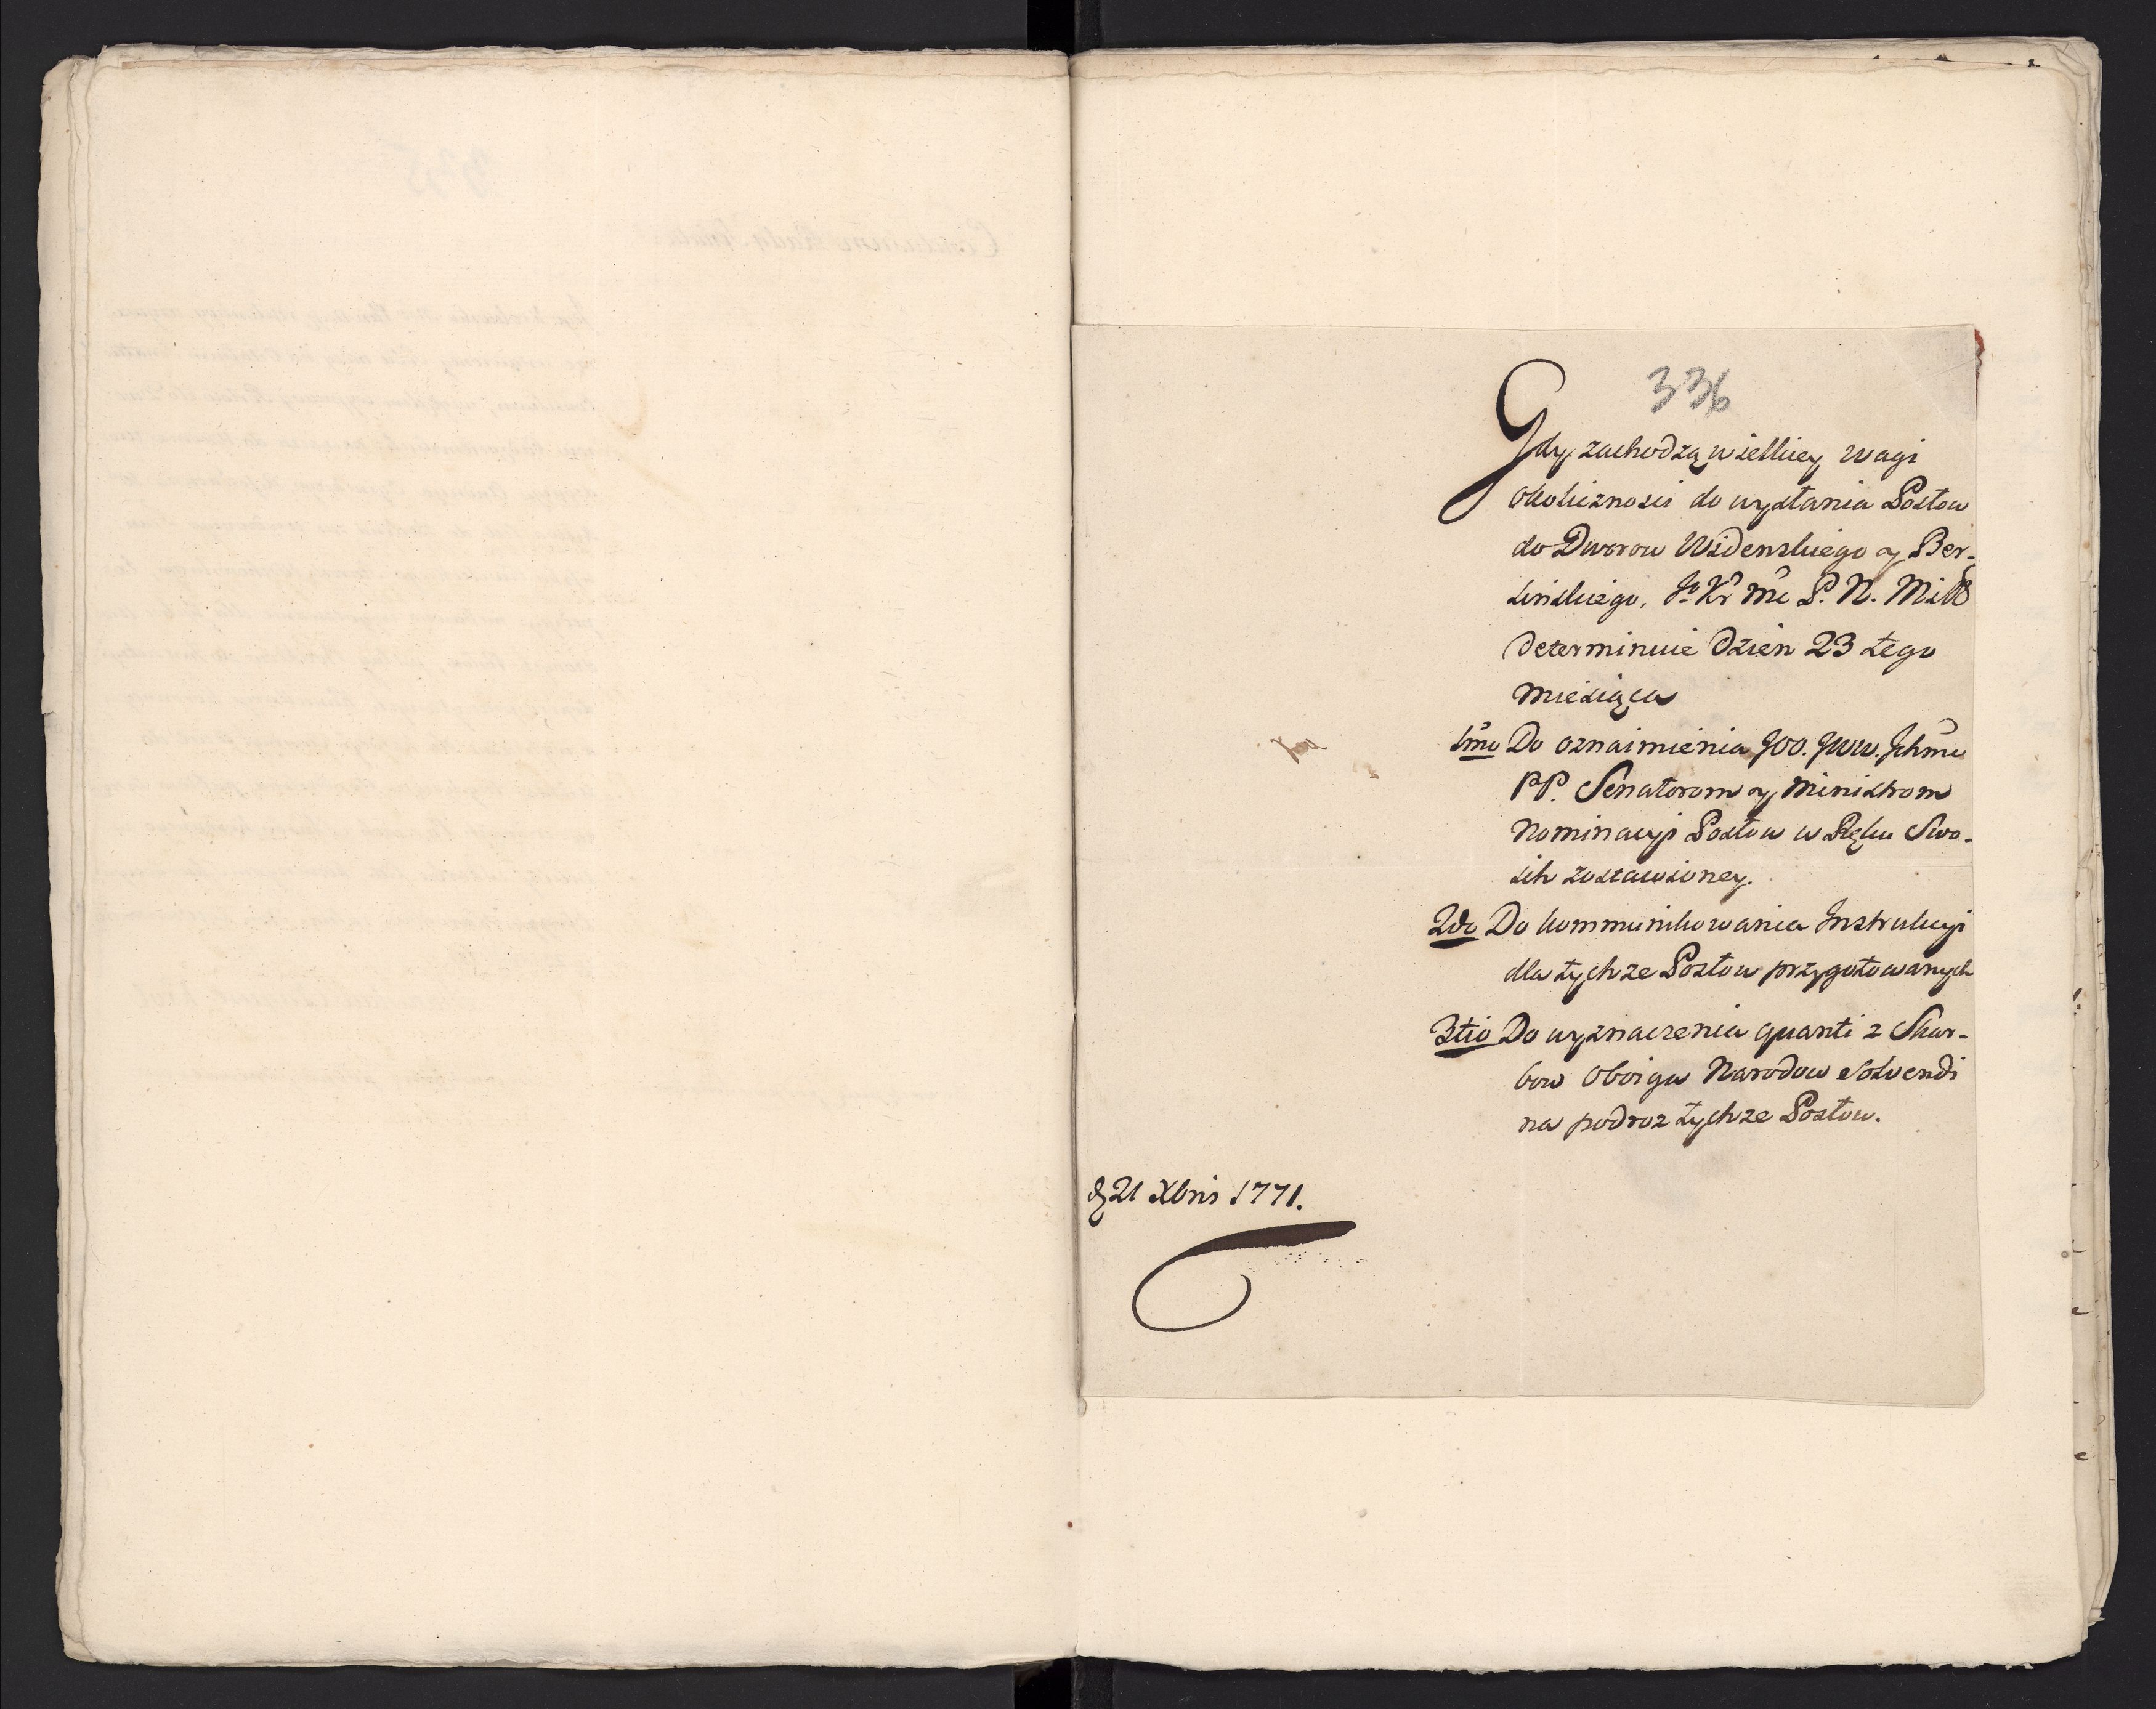 336
Gdy zachodzą wielkiey wagi
okolicznosci do wysłania Posłow
do Dworow Widenskiego y Ber-
linskiego, Jo Kr Mc P. N. Młł
determinuie dzien 23 tego
miesiąca
1mo Do oznaimienia JOO. JWW. Jchmc
PP. Senatorom y Ministrom
Nominacyi Posłow w Ręku Swo-
ich zostawioney.
2do Do kommunikowania Instrukcyi
dla tychze Posłow przygotowanych
3tio Do wyznaczenia quanti z Skar-
bow Oboiga Narodow solvendi
na podroz tychze Posłow.
d 21 Xbris 1771.